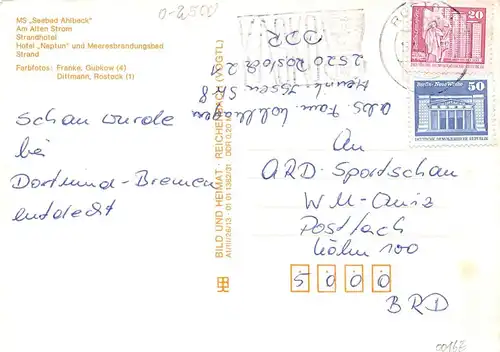 0-2,500
MS „Seebad Ahlbeck"
Am Alten Strom
Strandhotel
Hotel „Neptun" und Meeresbrandungsbad
Strand
Farbfotos: Franke, Gubkow (4)
Dittmann, Rostock (1)
Schan wurde
bei
Dortmund-Bremen
entdeckt
abs. Fam.
8
2520 Rostock 21
DDR
BILD UND HEIMAT · REICHENBACH (VOGTL)
A1/III/26/13 · 01 01 1362/31 DDR 0,20
20
Berlin - Neue Wache
50
DEUTSCHE DEMOKRATISCHE REPUBLIK
An
ARD-Sportschau
WM-Quiz
Postfach
Köln 100
5000
BRD